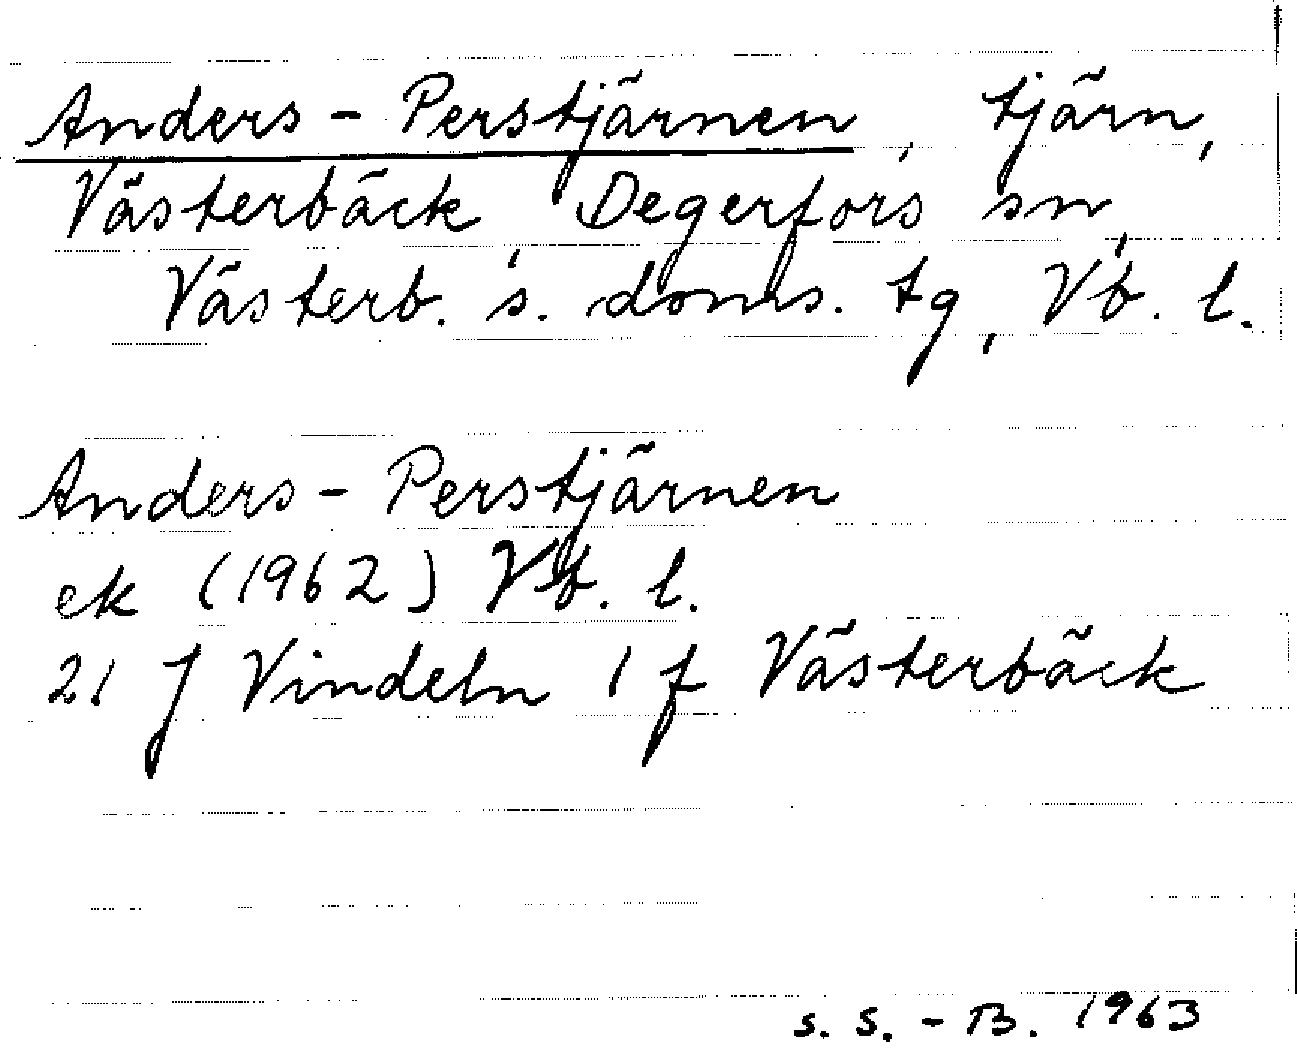 Anders-Perstjärnen, tjärn,
Västerbäck, Degerfors sn,
Västerb. s. doms. tg, Vb. l.
Anders-Perstjärnen
ek (1962) Vb. l.
21 J Vindeln 1 f Västerbäck
S. S.-B. 1963